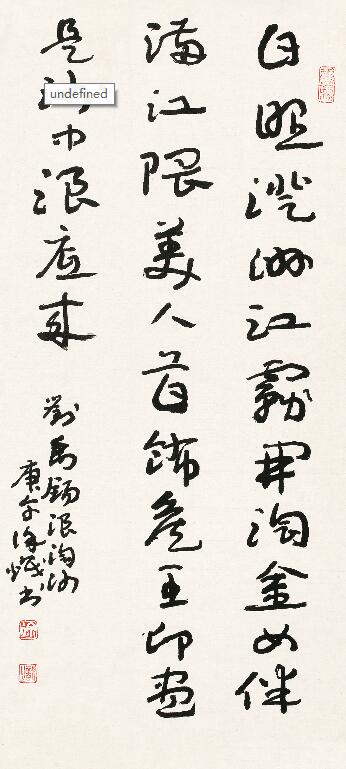 日照澄洲江霧開淘金女伴
滿江隈美人首飾侯王印盡
是中浪底來
undefined
劉禹錫浪淘沙
庚午徐書